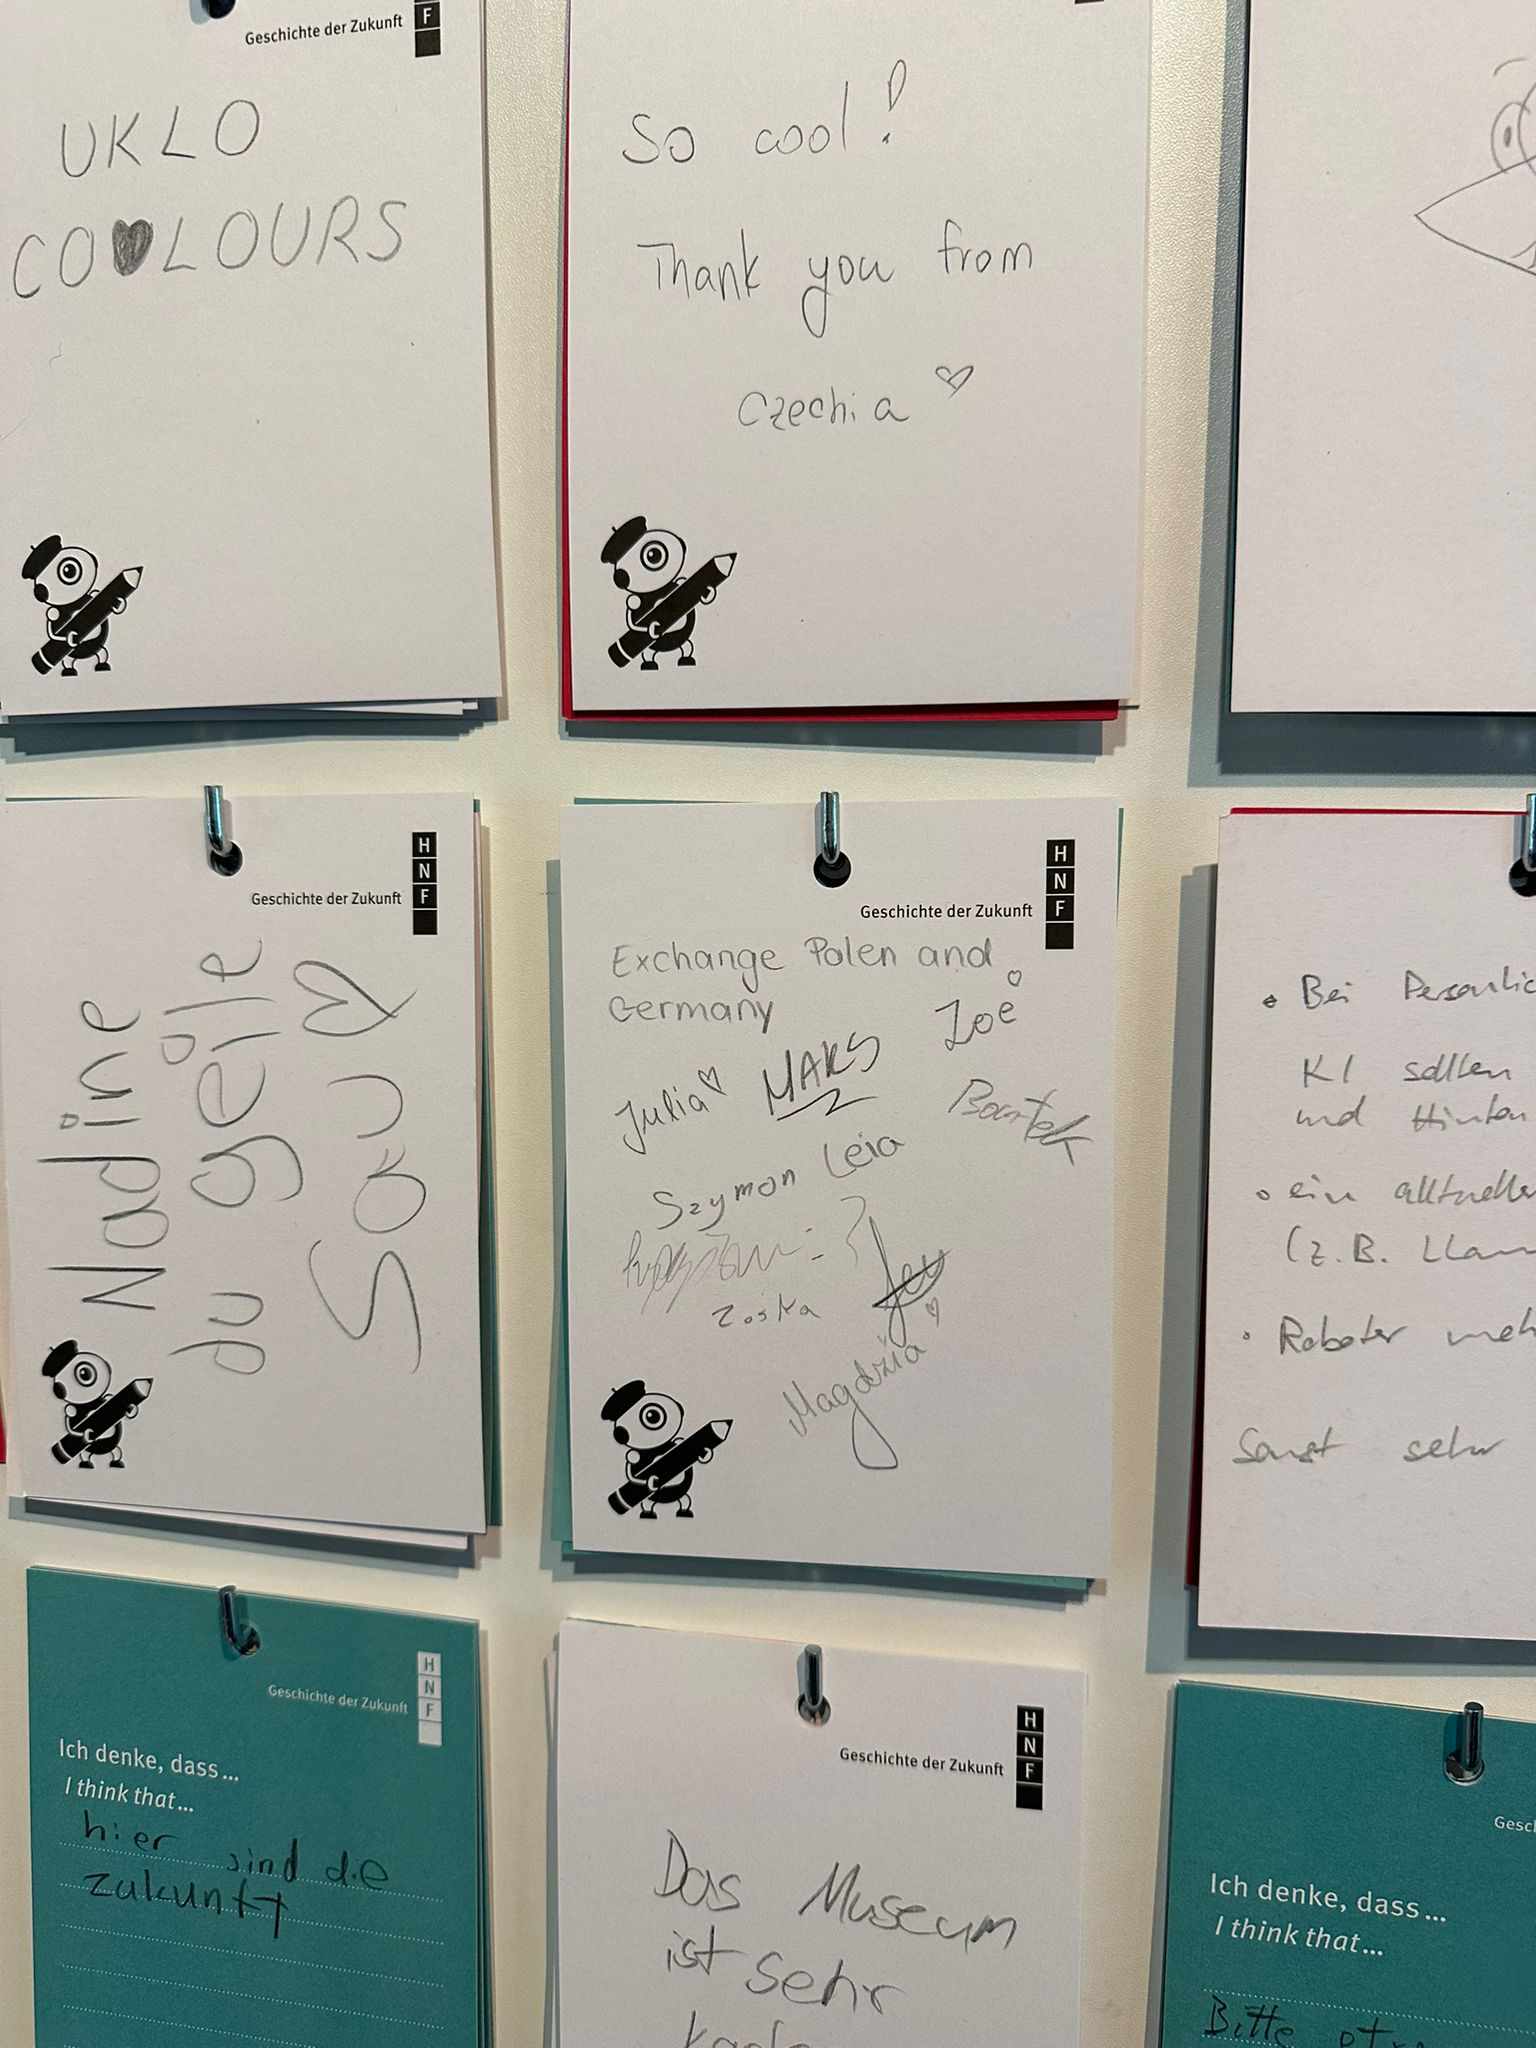 Geschichte der Zukunft
F
UKLO
COLOURS
So cool!
Thank you from
Czechia
HNF
Geschichte der Zukunft
Nadine
du geile
Sau
HNF
Geschichte der Zukunft
Exchange Polen and
Germany
Zoe
Julia MAKS
Bartek
Szymon Leia
Zośka
Magdzia
Bei
KI sollen
und Hinter
ein aktueller
(z.B. Llam
Roboter meh
Sonst sehr
HNF
Geschichte der Zukunft
Ich denke, dass...
I think that...
hier sind die
zukunft
HNF
Geschichte der Zukunft
Das Museum
ist sehr
Gesc
Ich denke, dass...
I think that...
Bitte